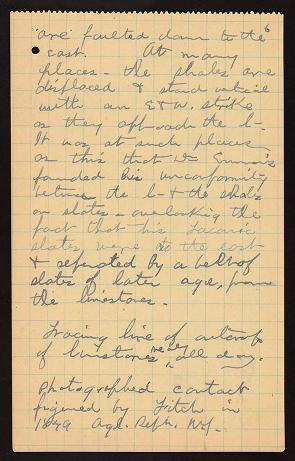 6
are faulted down to the
east. At many
places - the shales are
displaced & stand vertical
with an E & W. strike
as they approach the l-.
It was at such places
as this that Dr Emmons
founded his unconformity
between the l- & the shales
or slates - overlooking the
fact that his Taconic
slates were to the east
& separated by a belt of
slates of later age, from
the limestones.
Tracing line of outcrop
of limestones nearly all day.
Photographed contact
figured by Fitch in
1849 Agl. Rept. N.Y.